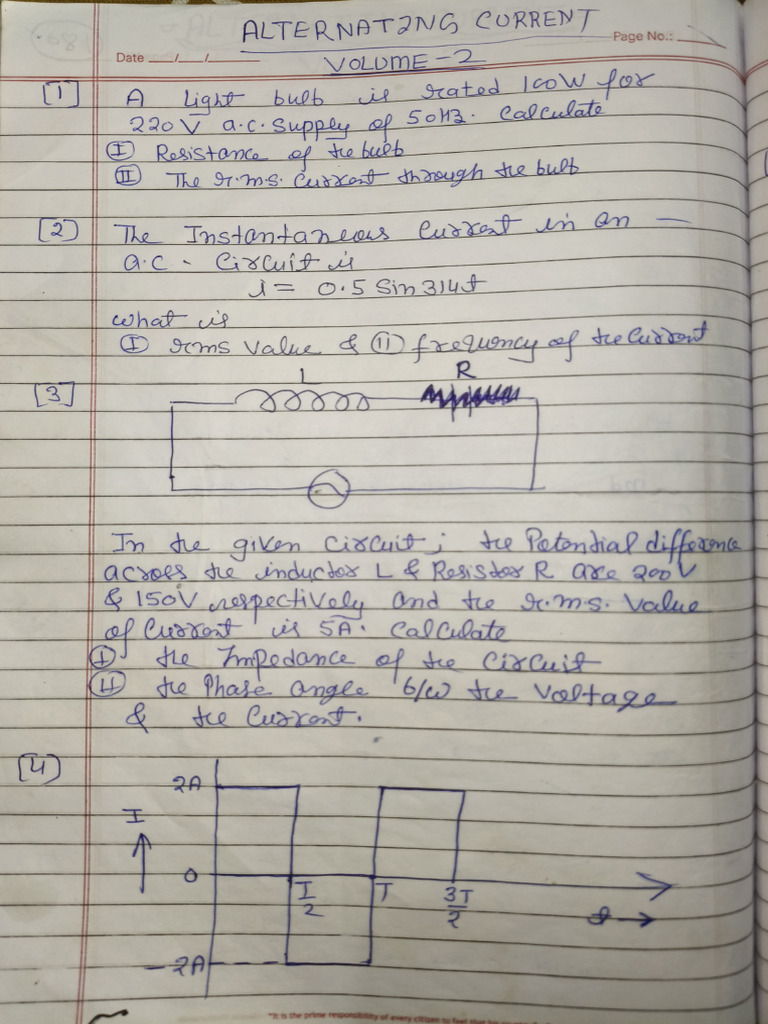 ALTERNATING CURRENT
Page No.:
Date __/__/__
VOLUME-2
[1] A Light bulb is rated 100W for
220V a.c. supply of 50Hz. Calculate
(I) Resistance of the bulb
(II) The r.m.s. Current through the bulb
[2] The Instantaneous Current in an —
a.c - Circuit is
i = 0.5 Sin 314t
what is
(I) rms Value & (II) frequency of the Current
[3] L R
In the given Circuit; the Potential difference
across the inductor L & Resistor R are 200V
& 150V respectively and the r.m.s. Value
of Current is 5A. Calculate
(I) the Impedance of the Circuit
(II) the Phase angle b/w the Voltage
& the Current.
[4]
2A
I
0 T/2 T 3T/2
-2A
"It is the prime responsibility of every citizen to feel that